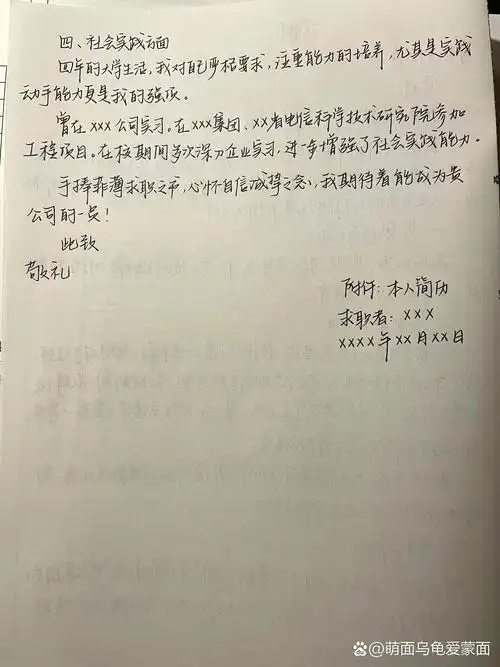 四、社会实践方面
四年的大学生活,我对自己严格要求,注重能力的培养,尤其是实践
动手能力更是我的强项。
曾在xxx公司实习。在xxx集团、xx省电信科学技术研究院参加
工程项目。在校期间多次深入企业实习,进一步增强了社会实践能力。
手捧菲薄求职之书,心怀自信诚挚之念,我期待着能成为贵
公司的一员!
此致
敬礼
附件:本人简历
求职者:xxx
xxxx年xx月xx日
@萌面乌龟爱蒙面